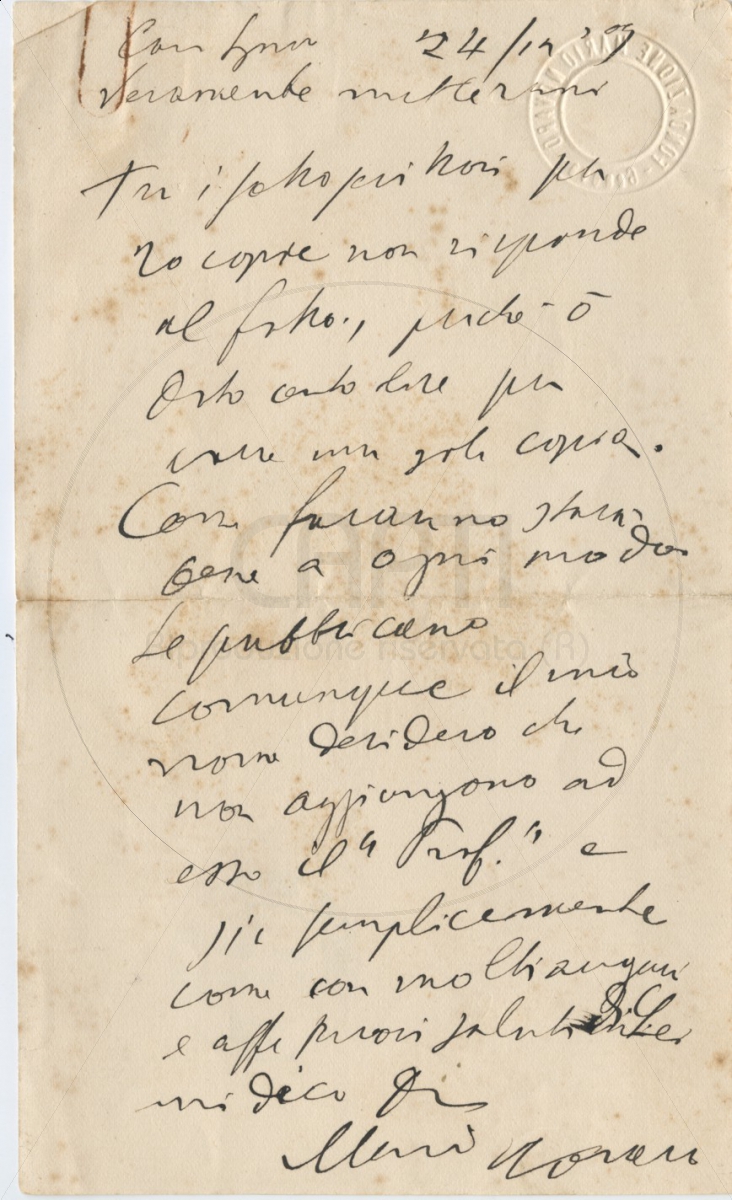 24/12 '39
veramente mettermi
Tra i sottoscrittori per
20 copie non risponde
al fatto, perché ò
dato cento lire per
avere una sola copia.
Come faranno starà
bene a ogni modo.
Se pubblicano
comunque il mio
nome desidero che
non aggiungono ad
esso il "Prof." e
sia semplicemente
come con molti auguri
e affettuosi saluti
mi dico
Mario Novaro